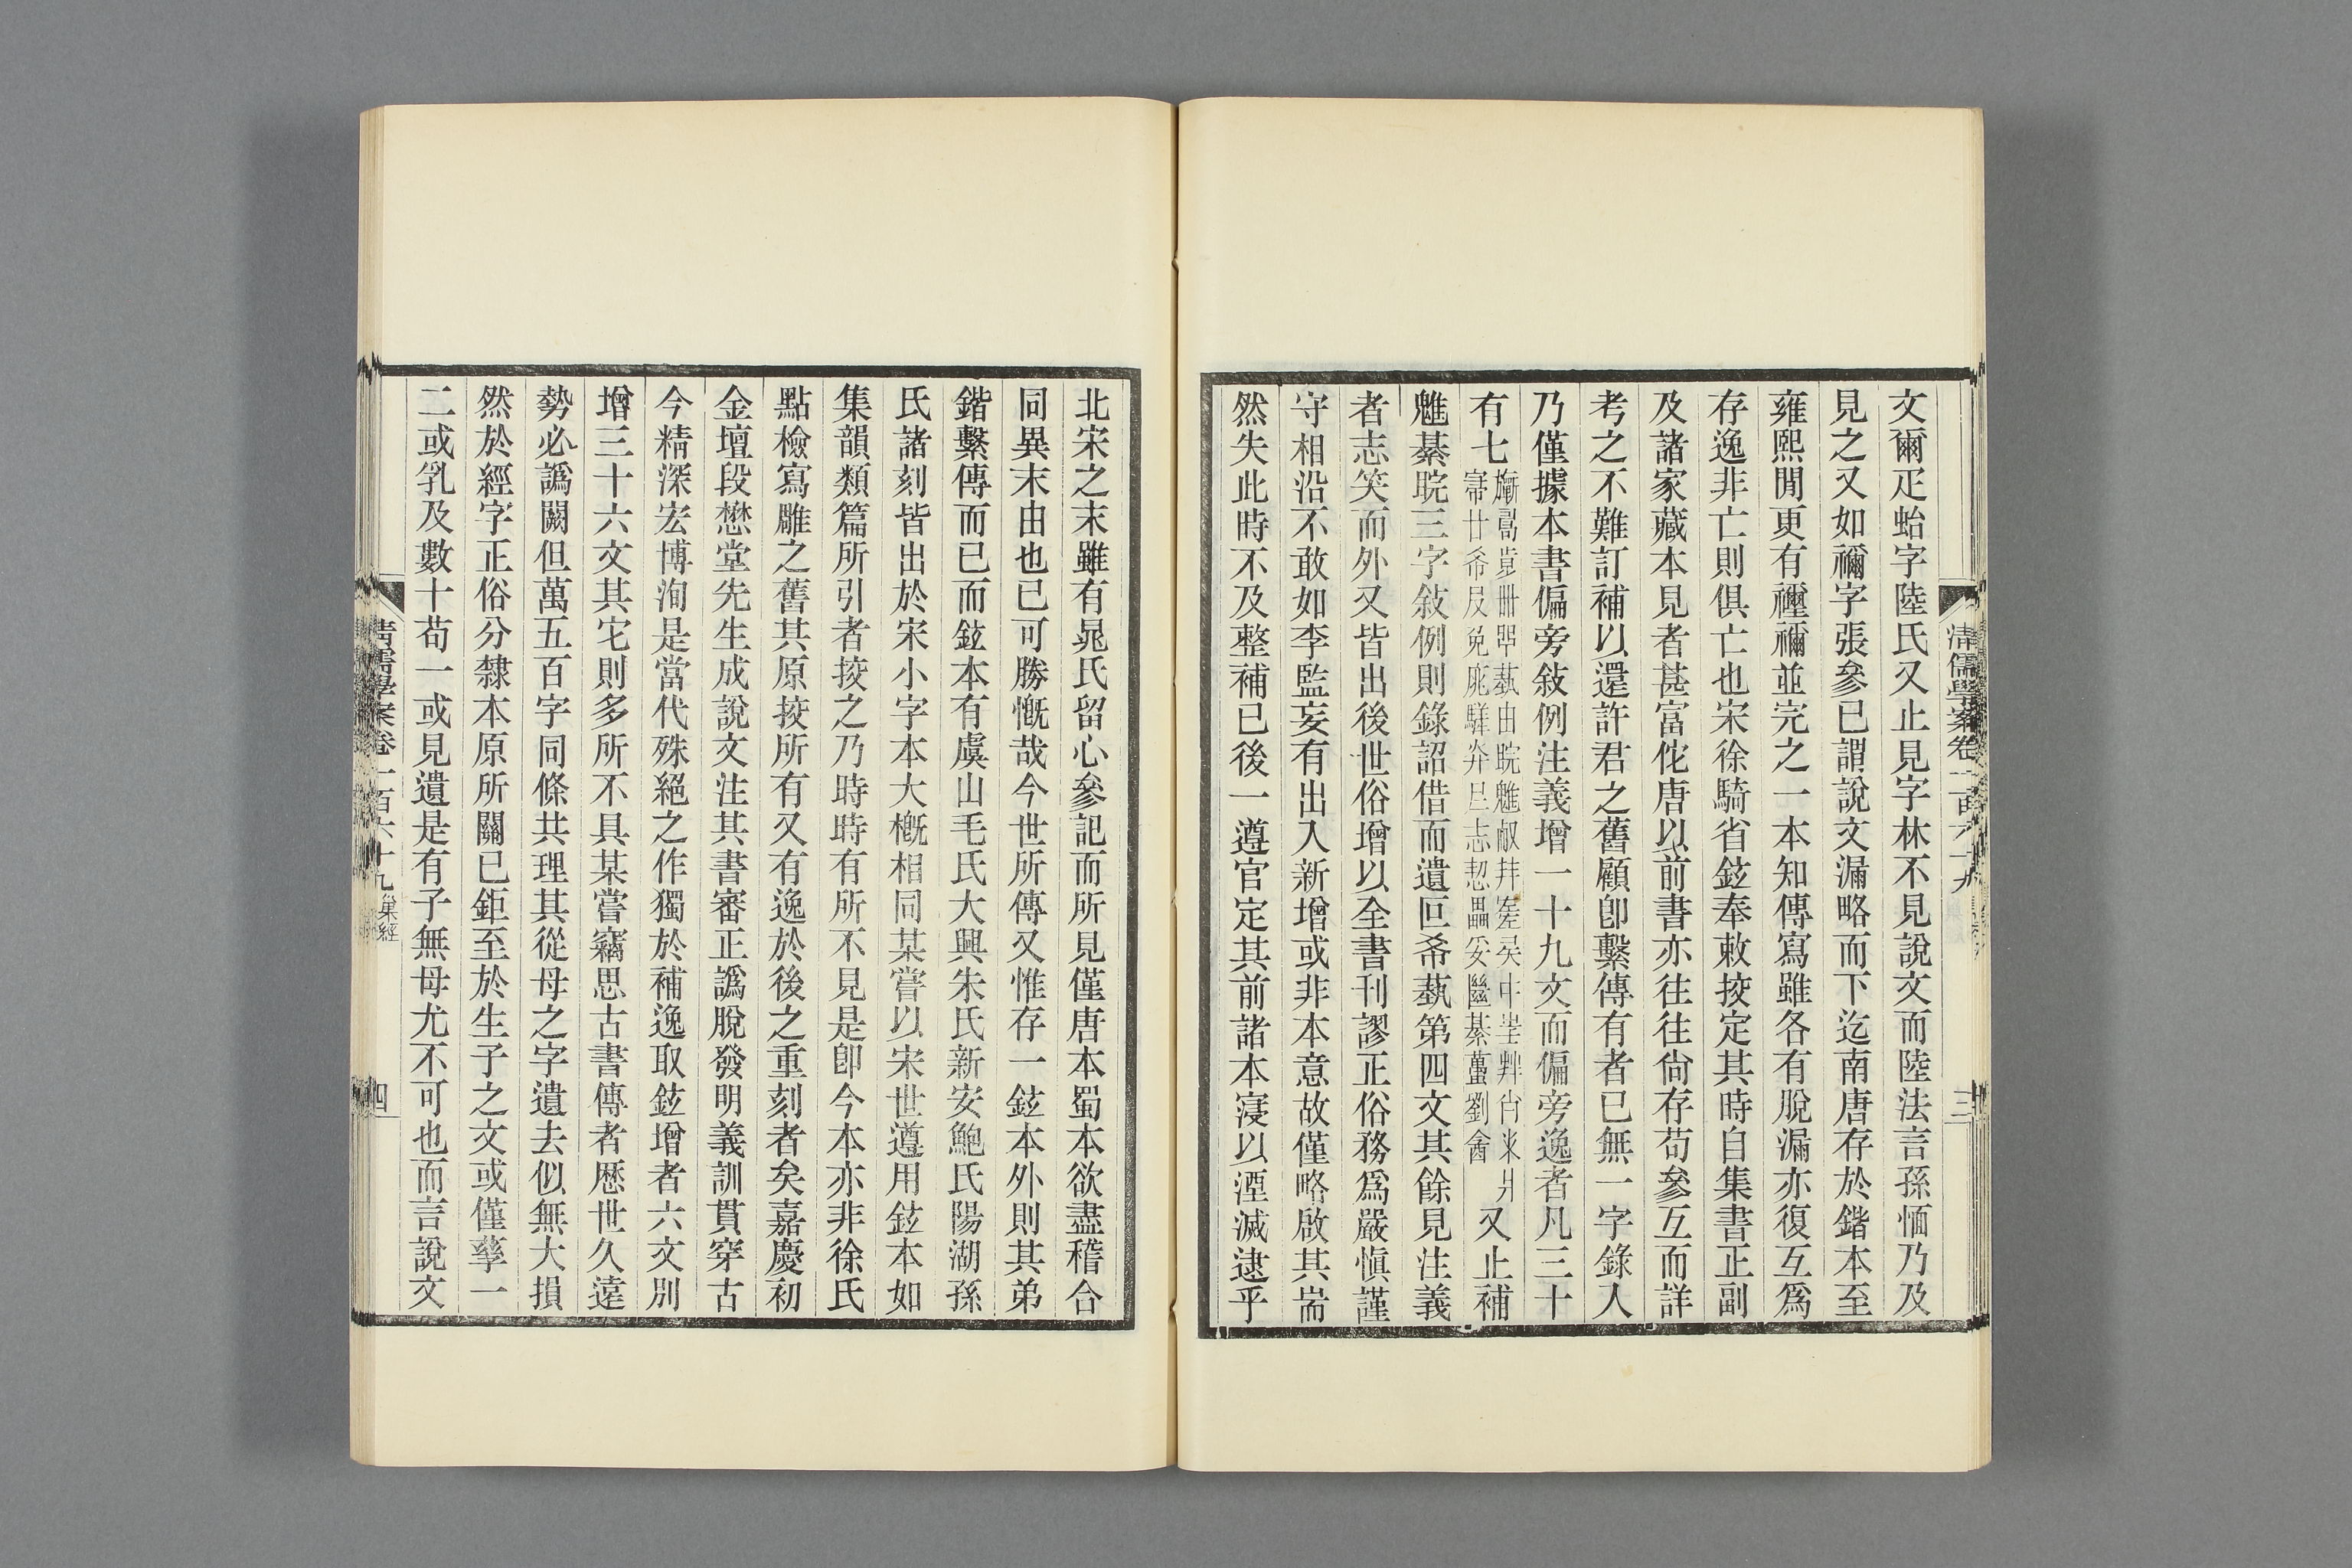 清儒學案卷一百六十九
三
文爾疋蛤字陸氏又止見字林不見說文而陸法言孫愐乃及
見之又如禰字張參已謂說文漏略而下迄南唐存於鍇本至
雍熙閒更有禋禰並完之一本知傳寫雖各有脫漏亦復互爲
存逸非亡則俱亡也宋徐騎省鉉奉敕挍定其時自集書正副
及諸家藏本見者甚富佗唐以前書亦往往尙存苟參互而詳
考之不難訂補以還許君之舊顧卽繫傳有者已無一字錄入
乃僅據本書偏旁敍例注義增一十九文而偏旁逸者凡三十
有七
又止補
魋綦睆三字敍例則錄詔借而遺叵希蓺第四文其餘見注義
者志笑而外又皆出後世俗增以全書刊謬正俗務爲嚴愼謹
守相沿不敢如李監妄有出入新增或非本意故僅略啟其耑
然失此時不及整補已後一遵官定其前諸本寖以湮滅逮乎
北宋之末雖有晁氏留心參記而所見僅唐本蜀本欲盡稽合
同異末由也已可勝慨哉今世所傳又惟存一鉉本外則其弟
鍇繫傳而已而鉉本有虞山毛氏大興朱氏新安鮑氏陽湖孫
氏諸刻皆出於宋小字本大槪相同某嘗以宋世遵用鉉本如
集韻類篇所引者挍之乃時時有所不見是卽今本亦非徐氏
點檢寫雕之舊其原挍所有又有逸於後之重刻者矣嘉慶初
金壇段懋堂先生成說文注其書審正譌脫發明義訓貫穿古
今精深宏博洵是當代殊絕之作獨於補逸取鉉增者六文別
增三十六文其宅則多所不具某嘗竊思古書傳者歷世久遠
勢必譌闕但萬五百字同條共理其從母之字遺去似無大損
然於經字正俗分隸本原所關已鉅至於生子之文或僅孳一
二或乳及數十苟一或見遺是有子無母尤不可也而言說文
清儒學案卷一百六十九 巢經
四